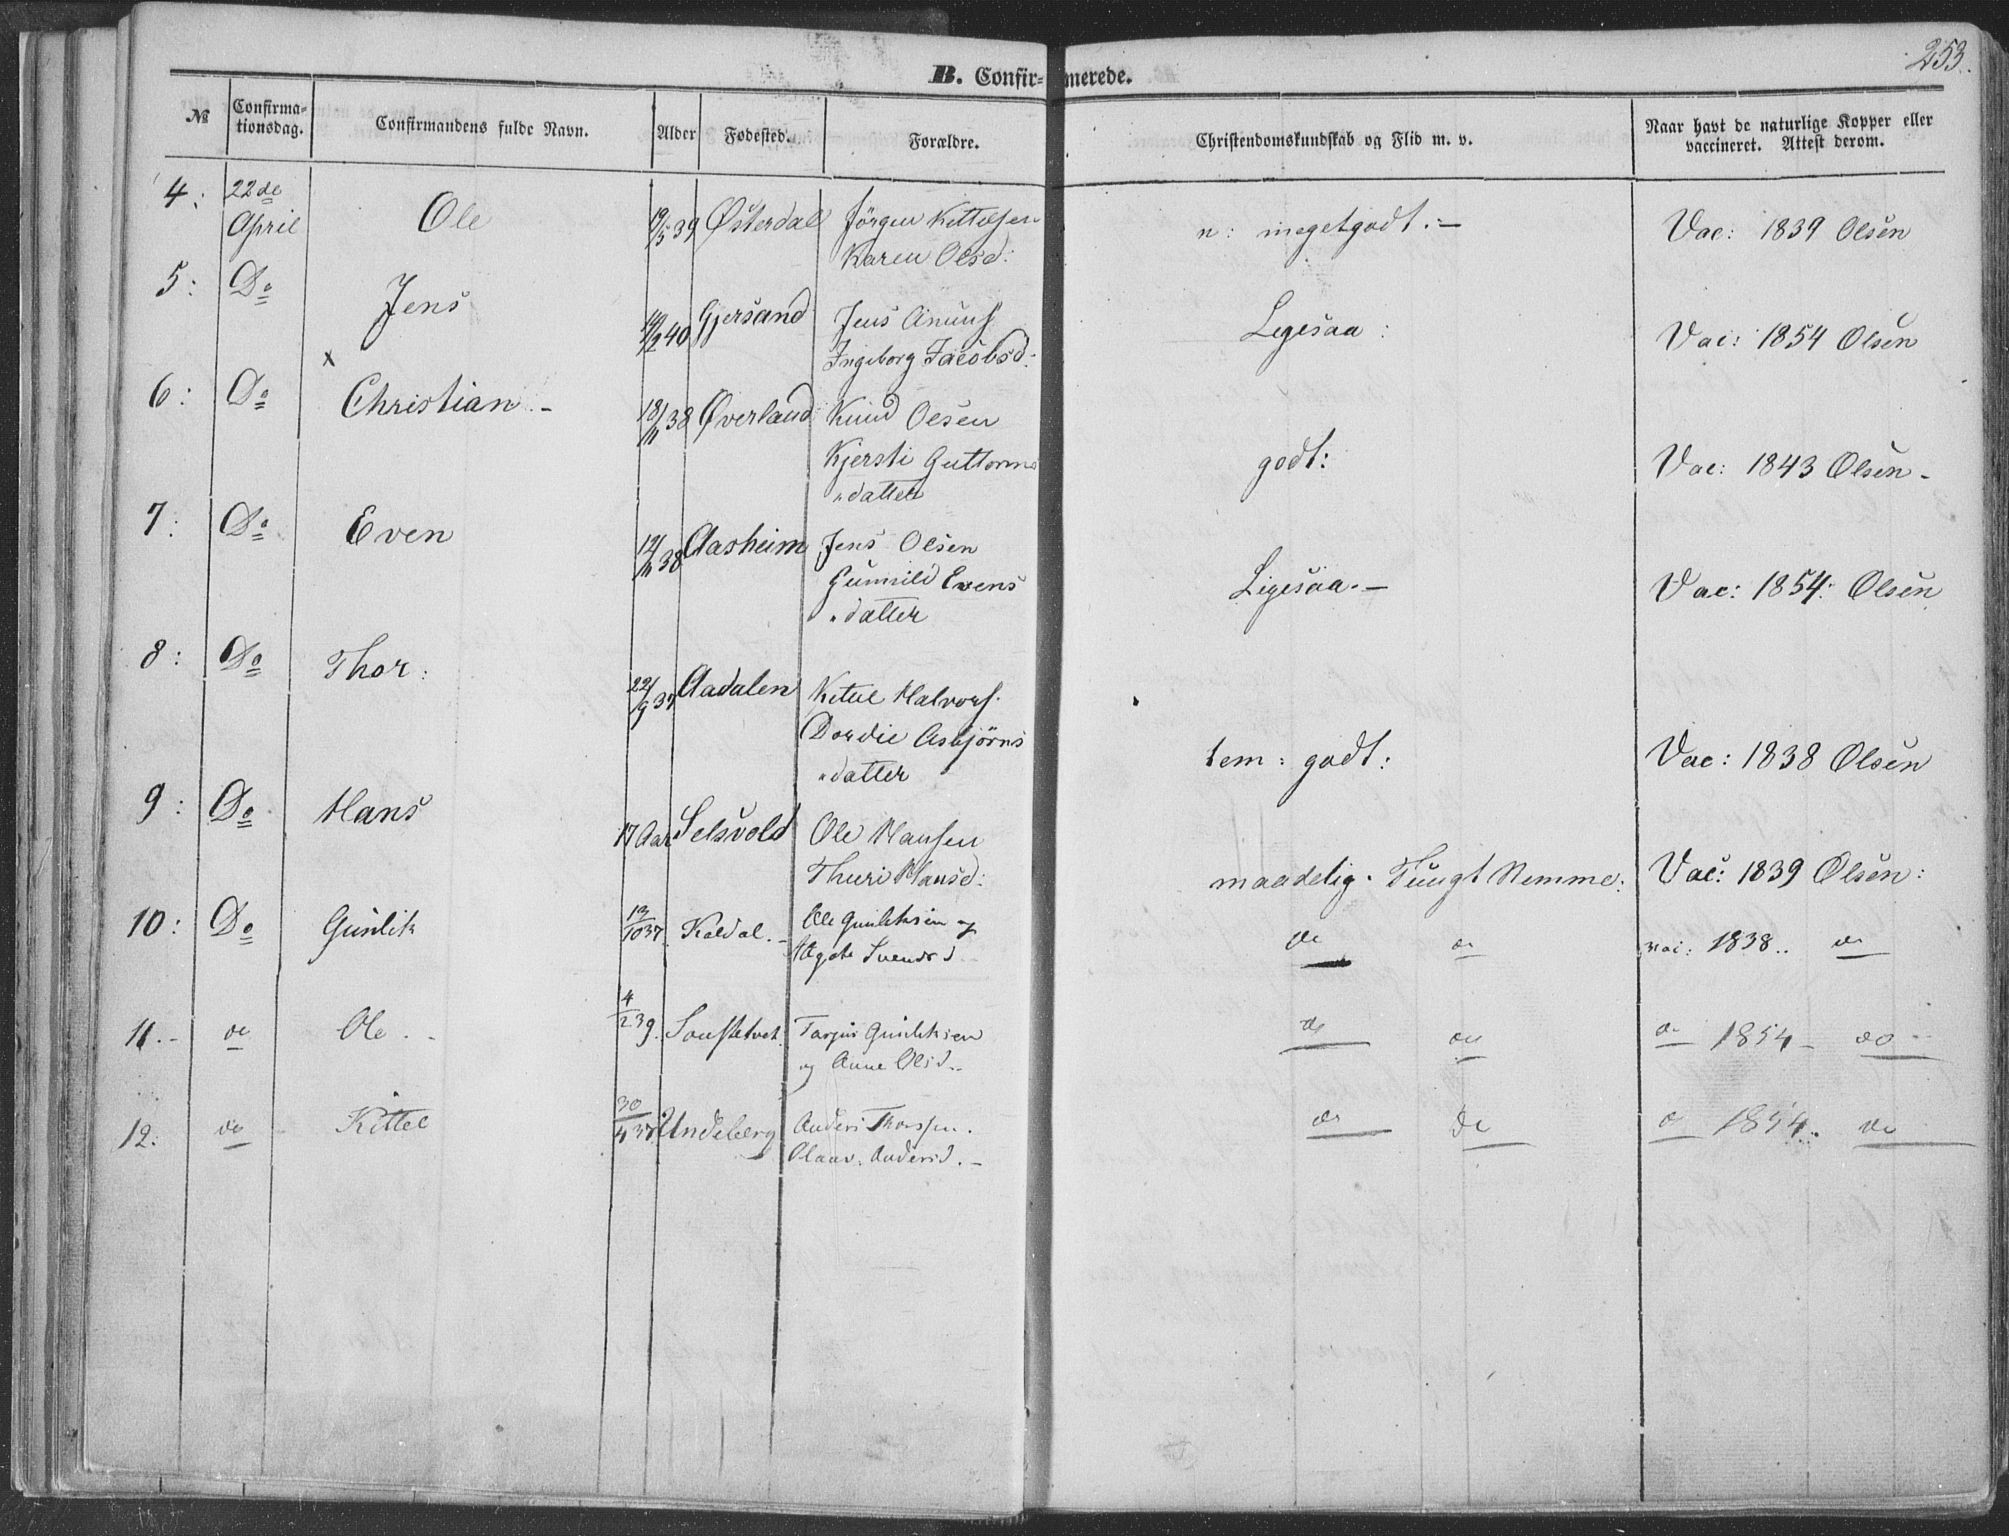 253.
B. Confir-merede.
№ Confirma-tionsdag. Confirmandens fulde Navn. Alder Fødested. Forældre. Christendomskundskab og Flid m. v. Naar havt de naturlige Kopper eller vaccineret. Attest derom.
4: 22de April Ole 19/5 39 Østerdal Jörgen Kittelsen n: megetgodt.- Vac: 1839 Olsen
Karen Olsd:
5: Do Jens 19/2 40 Gjersand Jens Anuns Ligesaa: Vac: 1854 Olsen
Ingeborg Jacobsd:
x
6: Do Christian - 18/11 38 Øverland Knud Olsen godt: Vac: 1843 Olsen -
Kjersti Guttorms
"datter
7: Do Even 12/11 38 Aasheim Jens Olsen Ligesaa.- Vac: 1854: Olsen
Gunnild Evens
"datter
8: Do Thor: 22/9 37 Aadalen Kittil Halvors. tem: godt: Vac: 1838 Olsen
Dordie Asbjörns
"datter
9: Do Hans 17 Aar Selsvold Ole Hansen maadelig. Tungt Nemme: Vac: 1839 Olsen:
Thuri Hansd:
10: Do Gunlik 13/10 37 Kaldal.- Ole Gunliksen og do do vac: 1838.. do
Aagate Svendsd
11.- do Ole.- 4/2 39. Targus Gunliksen do do do 1854- do -
og Anne Olsd..
12: do Kittel 30/4 37. Undeberg Anders Thorssen. do do do 1854. do
Olaav. Andersd.-